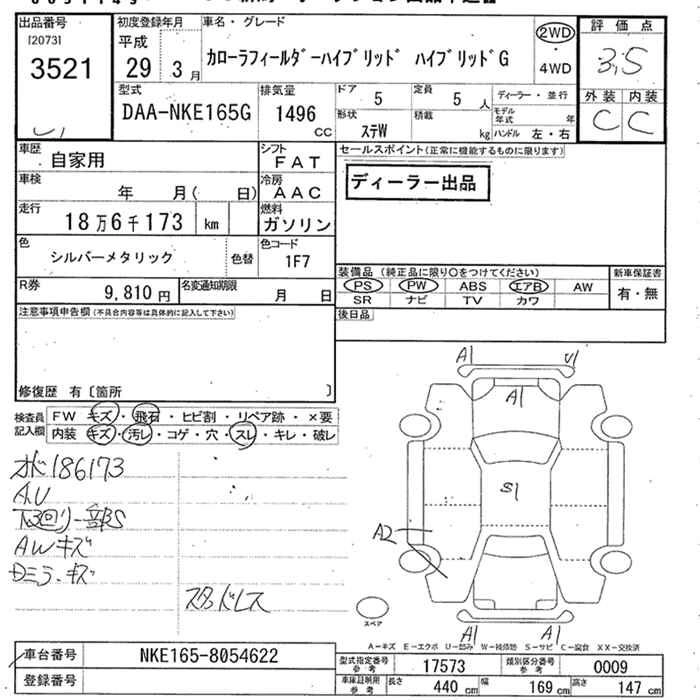 出品番号
[2073]
3521
初度登録年月
平成
29年 3月
車名・グレード
カローラフィールダーハイブリッド ハイブリッドG
2WD
・
4WD
評価点
3.5
外装 内装
C C
型式
DAA-NKE165G
排気量
1496
CC
ドア 5
定員 5 人
形状 ステW
積載 kg
ディーラー・並行
モデル年式 年
ハンドル 左・右
車歴
自家用
シフト
F A T
車検
年 月( 日)
冷房
A A C
走行
18万6千173 km
燃料
ガソリン
色
シルバーメタリック
色替
色コード
1F7
R券
9,810円
名変通知期限
月 日
セールスポイント(正常に機能するものに限ります)
ディーラー出品
装備品 (純正品に限り○をつけてください)
PS PW ABS エアB AW
SR ナビ TV カワ
新車保証書
有・無
後日品
注意事項申告欄(不具合内容等は具体的に記入して下さい)
修復歴 有〔箇所 〕
検査員記入欄
FW キズ・飛石・ヒビ割・リペア跡・×要
内装 キズ・汚レ・コゲ・穴・スレ・キレ・破レ
オド186173
AU
下回リ一部S
AWキズ
Dミラーキズ
スタッドレス
A1 U1
A1
S1
A2
A1 A1
スペア
A-キズ E-エクボ U-凹み W-補修跡 S-サビ C-腐食 XX-交換済
車台番号
NKE165-8054622
登録番号
型式指定番号
参考
17573
類別区分番号
参考
0009
車庫証明用
参考
長さ 440 cm
幅 169 cm
高さ 147 cm